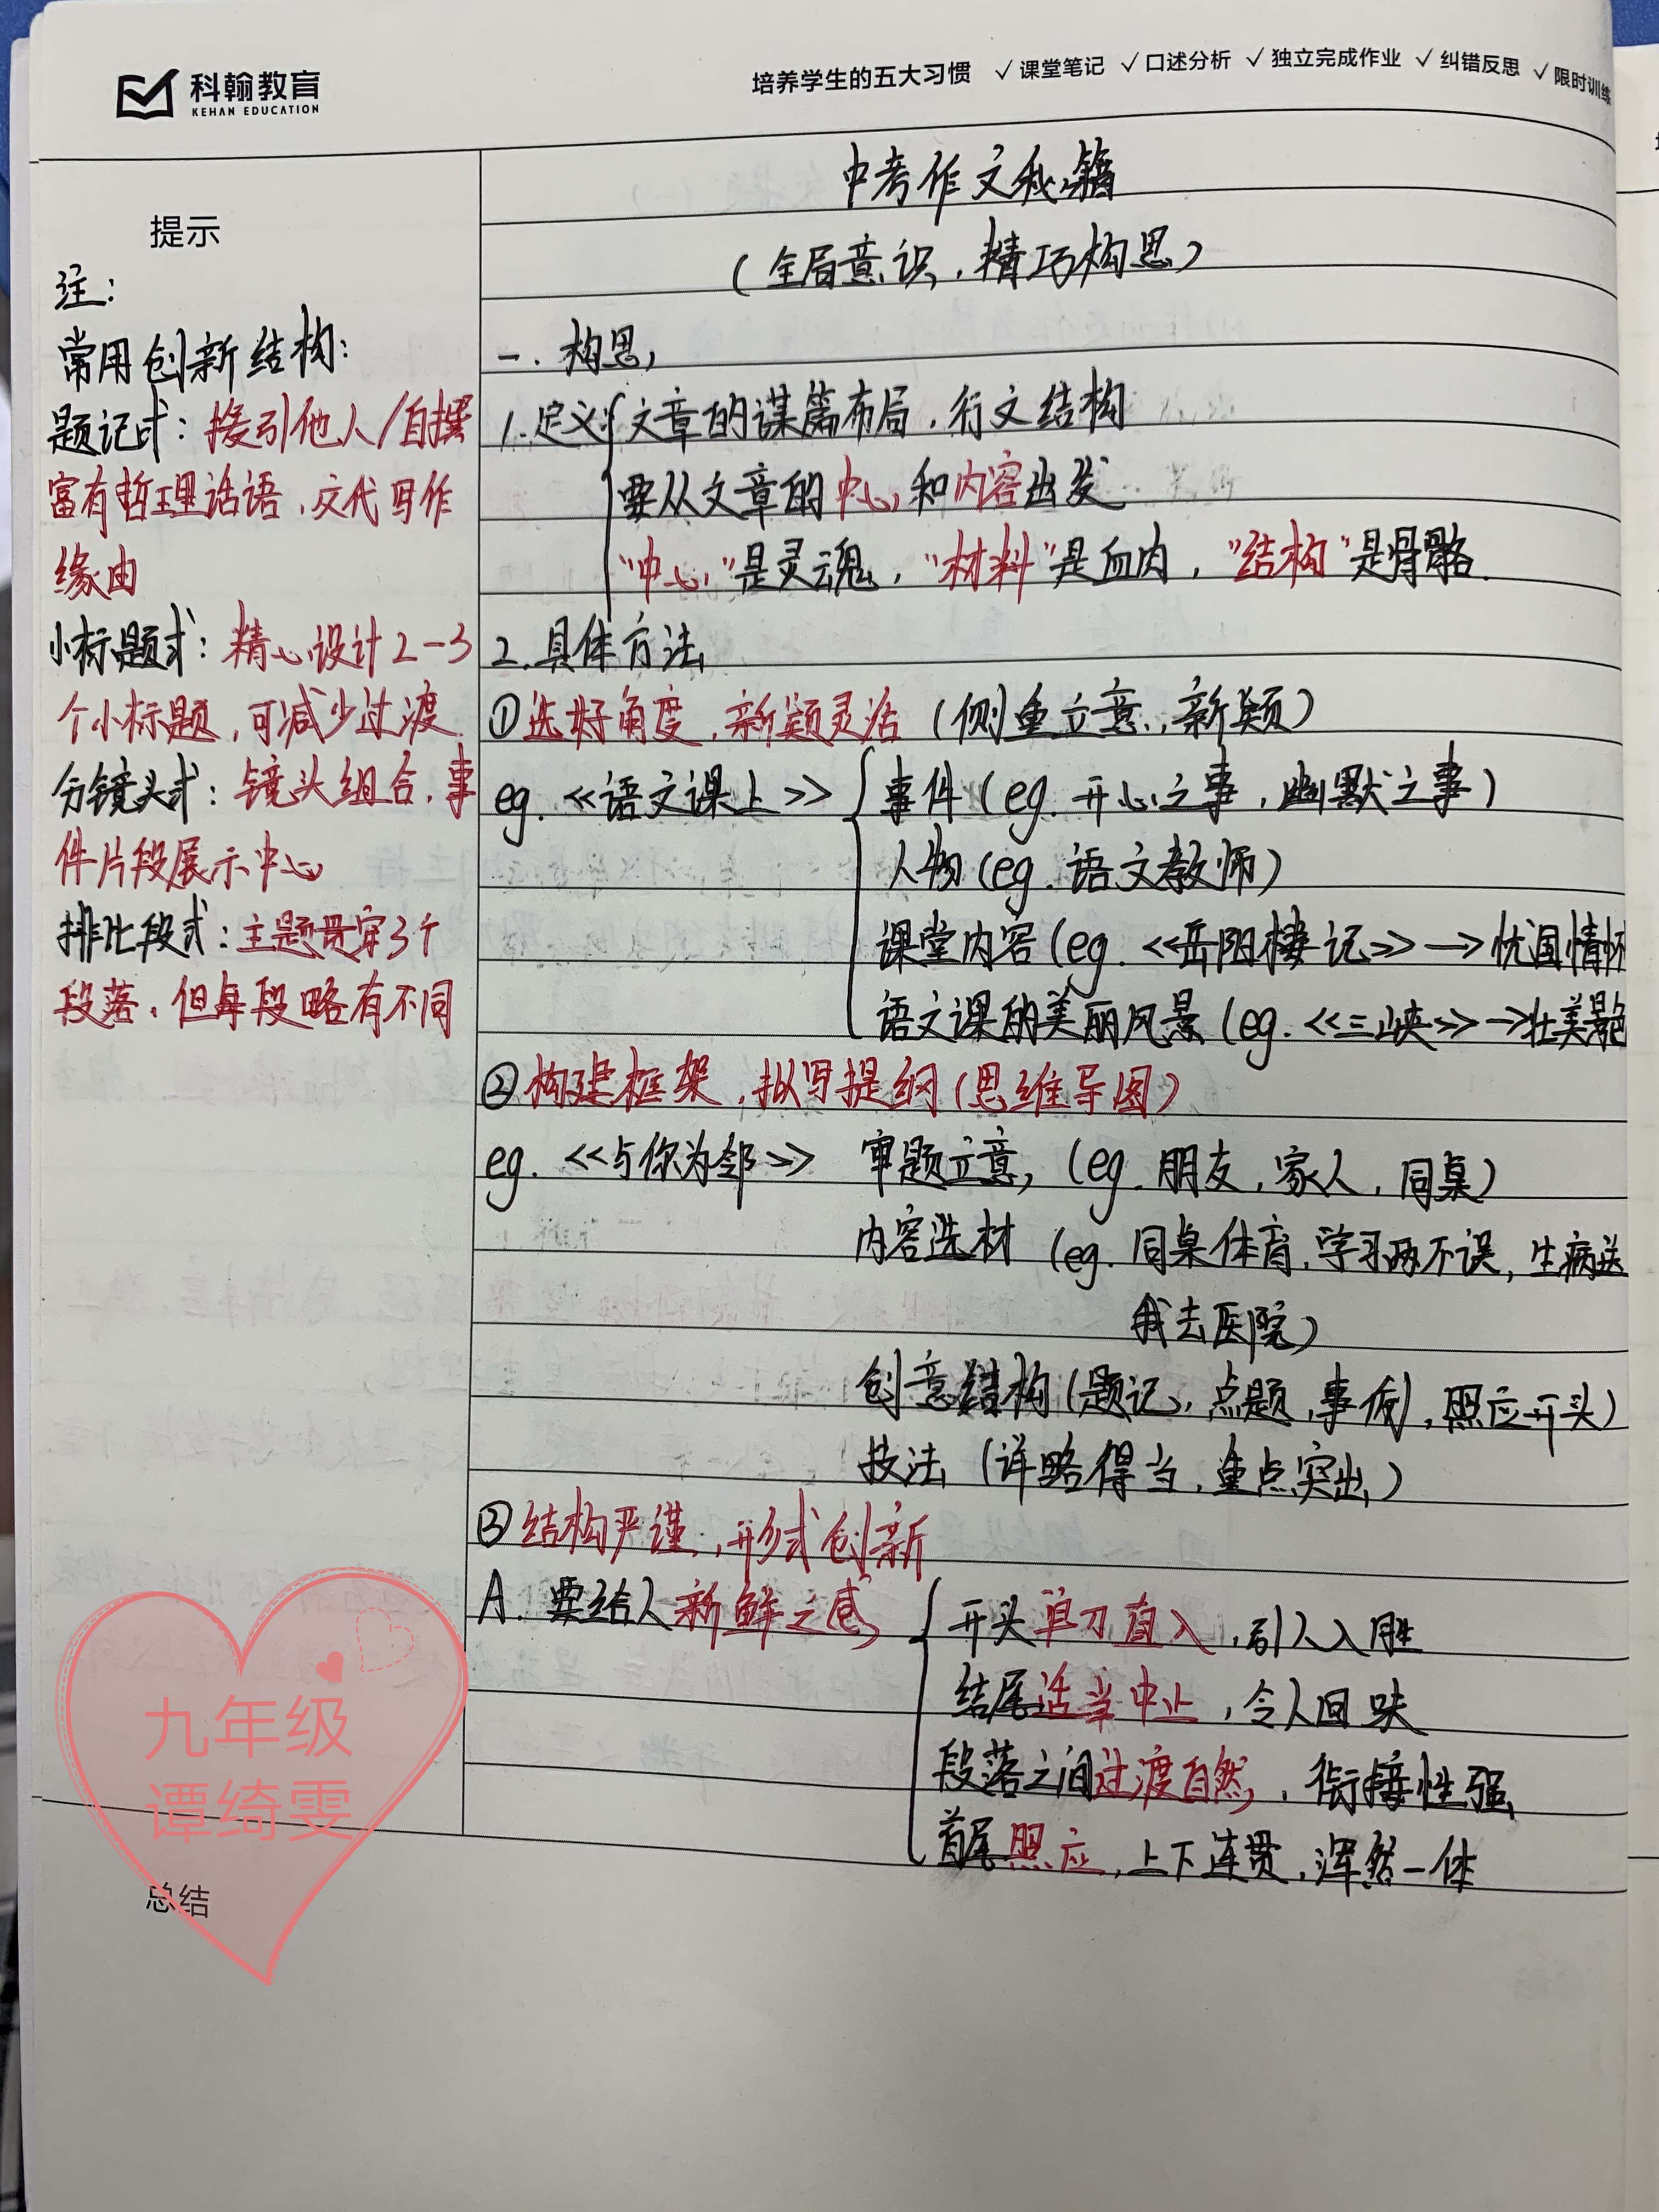 科翰教育
KEHAN EDUCATION
培养学生的五大习惯 ✓课堂笔记 ✓口述分析 ✓独立完成作业 ✓纠错反思 ✓限时训练
提示
注：
常用创新结构：
题记式：援引他人/自撰
富有哲理话语，交代写作
缘由
小标题式：精心设计2-3
个小标题，可减少过渡
分镜头式：镜头组合，事
件片段展示中心
排比段式：主题贯穿3个
段落，但每段略有不同
中考作文秘籍
（全局意识，精巧构思）
一．构思
1.定义 文章的谋篇布局，行文结构
要从文章的中心和内容出发
"中心"是灵魂，"材料"是血肉，"结构"是骨骼．
2.具体方法
①选好角度，新颖灵活（侧重立意，新颖）
eg.《语文课上》 事件（eg.开心之事，幽默之事）
人物（eg.语文教师）
课堂内容（eg.《岳阳楼记》→忧国情怀
语文课的美丽风景（eg.《三峡》→壮美景色
②构建框架，拟写提纲（思维导图）
eg.《与你为邻》 审题立意，（eg.朋友，家人，同桌）
内容选材（eg.同桌体育，学习两不误，生病送
我去医院）
创意结构（题记，点题，事例，照应开头）
技法（详略得当，重点突出）
③结构严谨，形式创新
A．要给人新鲜之感 开头单刀直入，引人入胜
结尾适当中止，令人回味
段落之间过渡自然，衔接性强
首尾照应，上下连贯，浑然一体
九年级
谭绮雯
总结